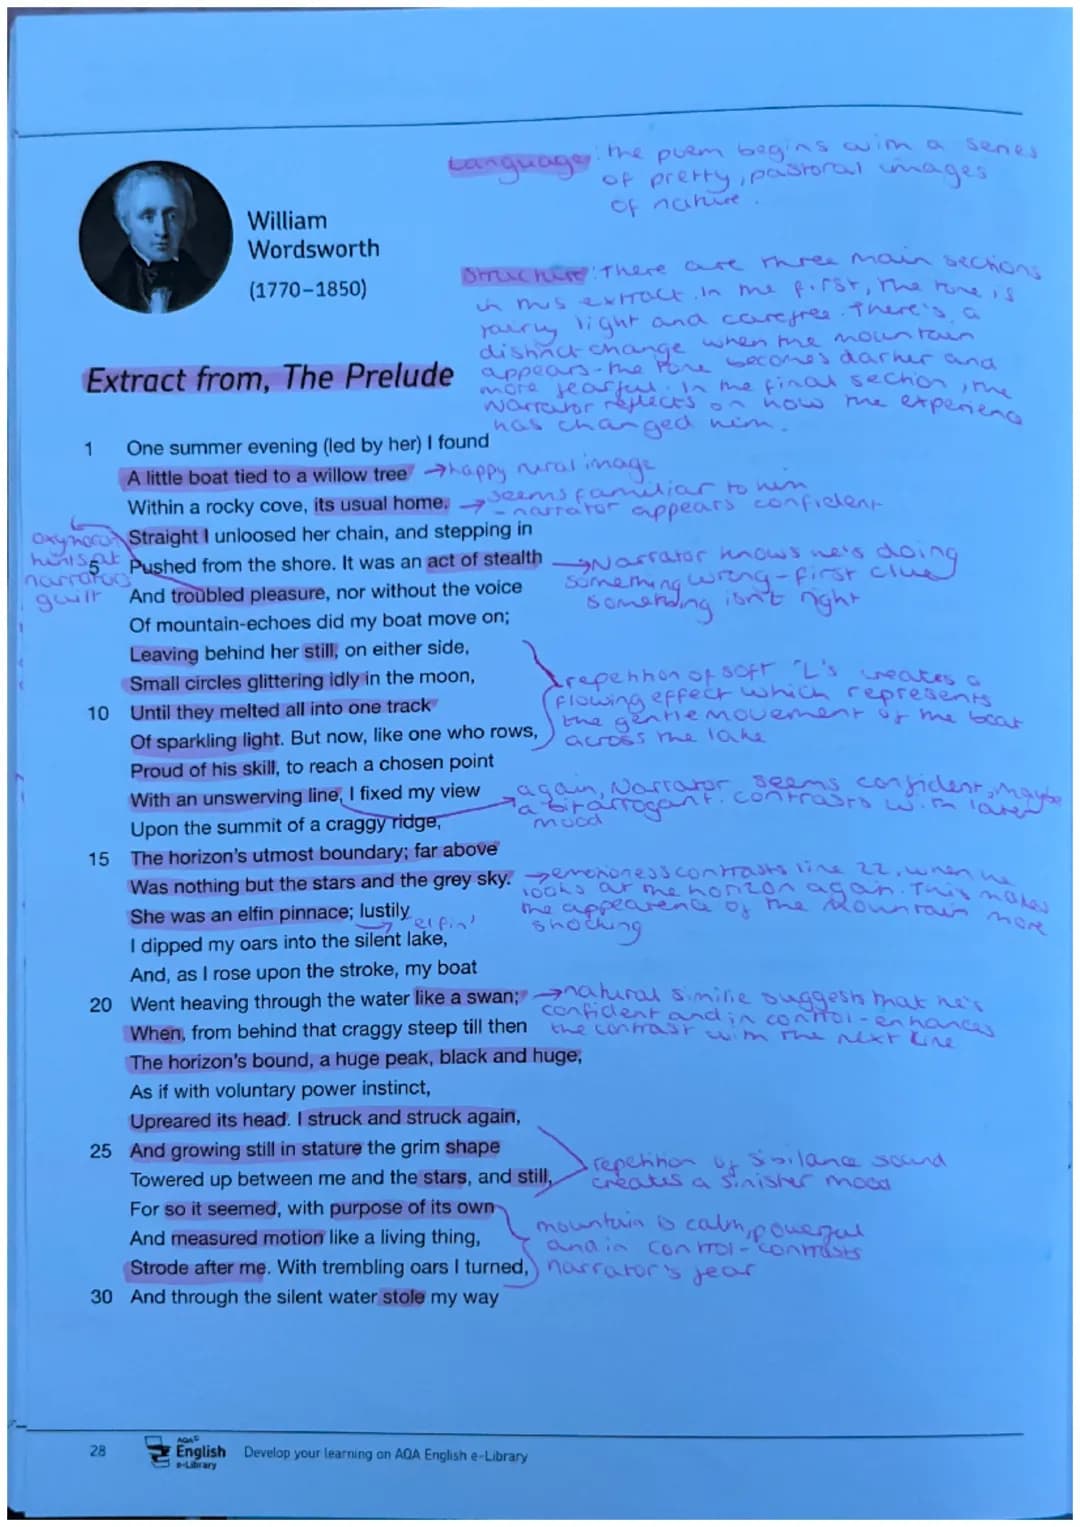 Language: the poem begins with a series
of pretty, pastoral images
of nature.
William
Wordsworth
(1770–1850)
Structure: There are three main sections
in this extract. In the first, the tone is
fairly light and carefree. There's a
distinct change when the mountain
appears - the tone becomes darker and
more fearful. In the final section, the
Narrator reflects on how the experience
has changed him.
Extract from, The Prelude
1 One summer evening (led by her) I found
A little boat tied to a willow tree → happy rural image
Within a rocky cove, its usual home. → seems familiar to him
- narrator appears confident
Straight I unloosed her chain, and stepping in
oxymoron
hints at
narrators
guilt
5 Pushed from the shore. It was an act of stealth
→ Narrator knows he's doing
something wrong - first clue
something isn't right
And troubled pleasure, nor without the voice
Of mountain-echoes did my boat move on;
Leaving behind her still, on either side,
Small circles glittering idly in the moon,
10 Until they melted all into one track
Of sparkling light. But now, like one who rows,
repetition of soft 'L's creates a
flowing effect which represents
the gentle movement of the boat
across the lake
Proud of his skill, to reach a chosen point
With an unswerving line, I fixed my view
again, Narrator seems confident, maybe
a bit arrogant. contrasts with later
mood
Upon the summit of a craggy ridge,
15 The horizon's utmost boundary; far above
Was nothing but the stars and the grey sky.
contrasts line 22, when he
looks at the horizon again. This makes
the appearence of the Mountain more
shocking
She was an elfin pinnace; lustily
elfin'
I dipped my oars into the silent lake,
And, as I rose upon the stroke, my boat
20 Went heaving through the water like a swan;
→ natural similie suggests that he's
confident and in control - enhances
the contrast with the next line
When, from behind that craggy steep till then
The horizon's bound, a huge peak, black and huge,
As if with voluntary power instinct,
Upreared its head. I struck and struck again,
25 And growing still in stature the grim shape
Towered up between me and the stars, and still,
repetition of sibilance sound
creates a sinister mood
For so it seemed, with purpose of its own
And measured motion like a living thing,
Strode after me. With trembling oars I turned,
mountain is calm, powerful
and in control - contrasts
narrator's fear
30 And through the silent water stole my way
28
AQA
English
e-Library
Develop your learning on AQA English e-Library